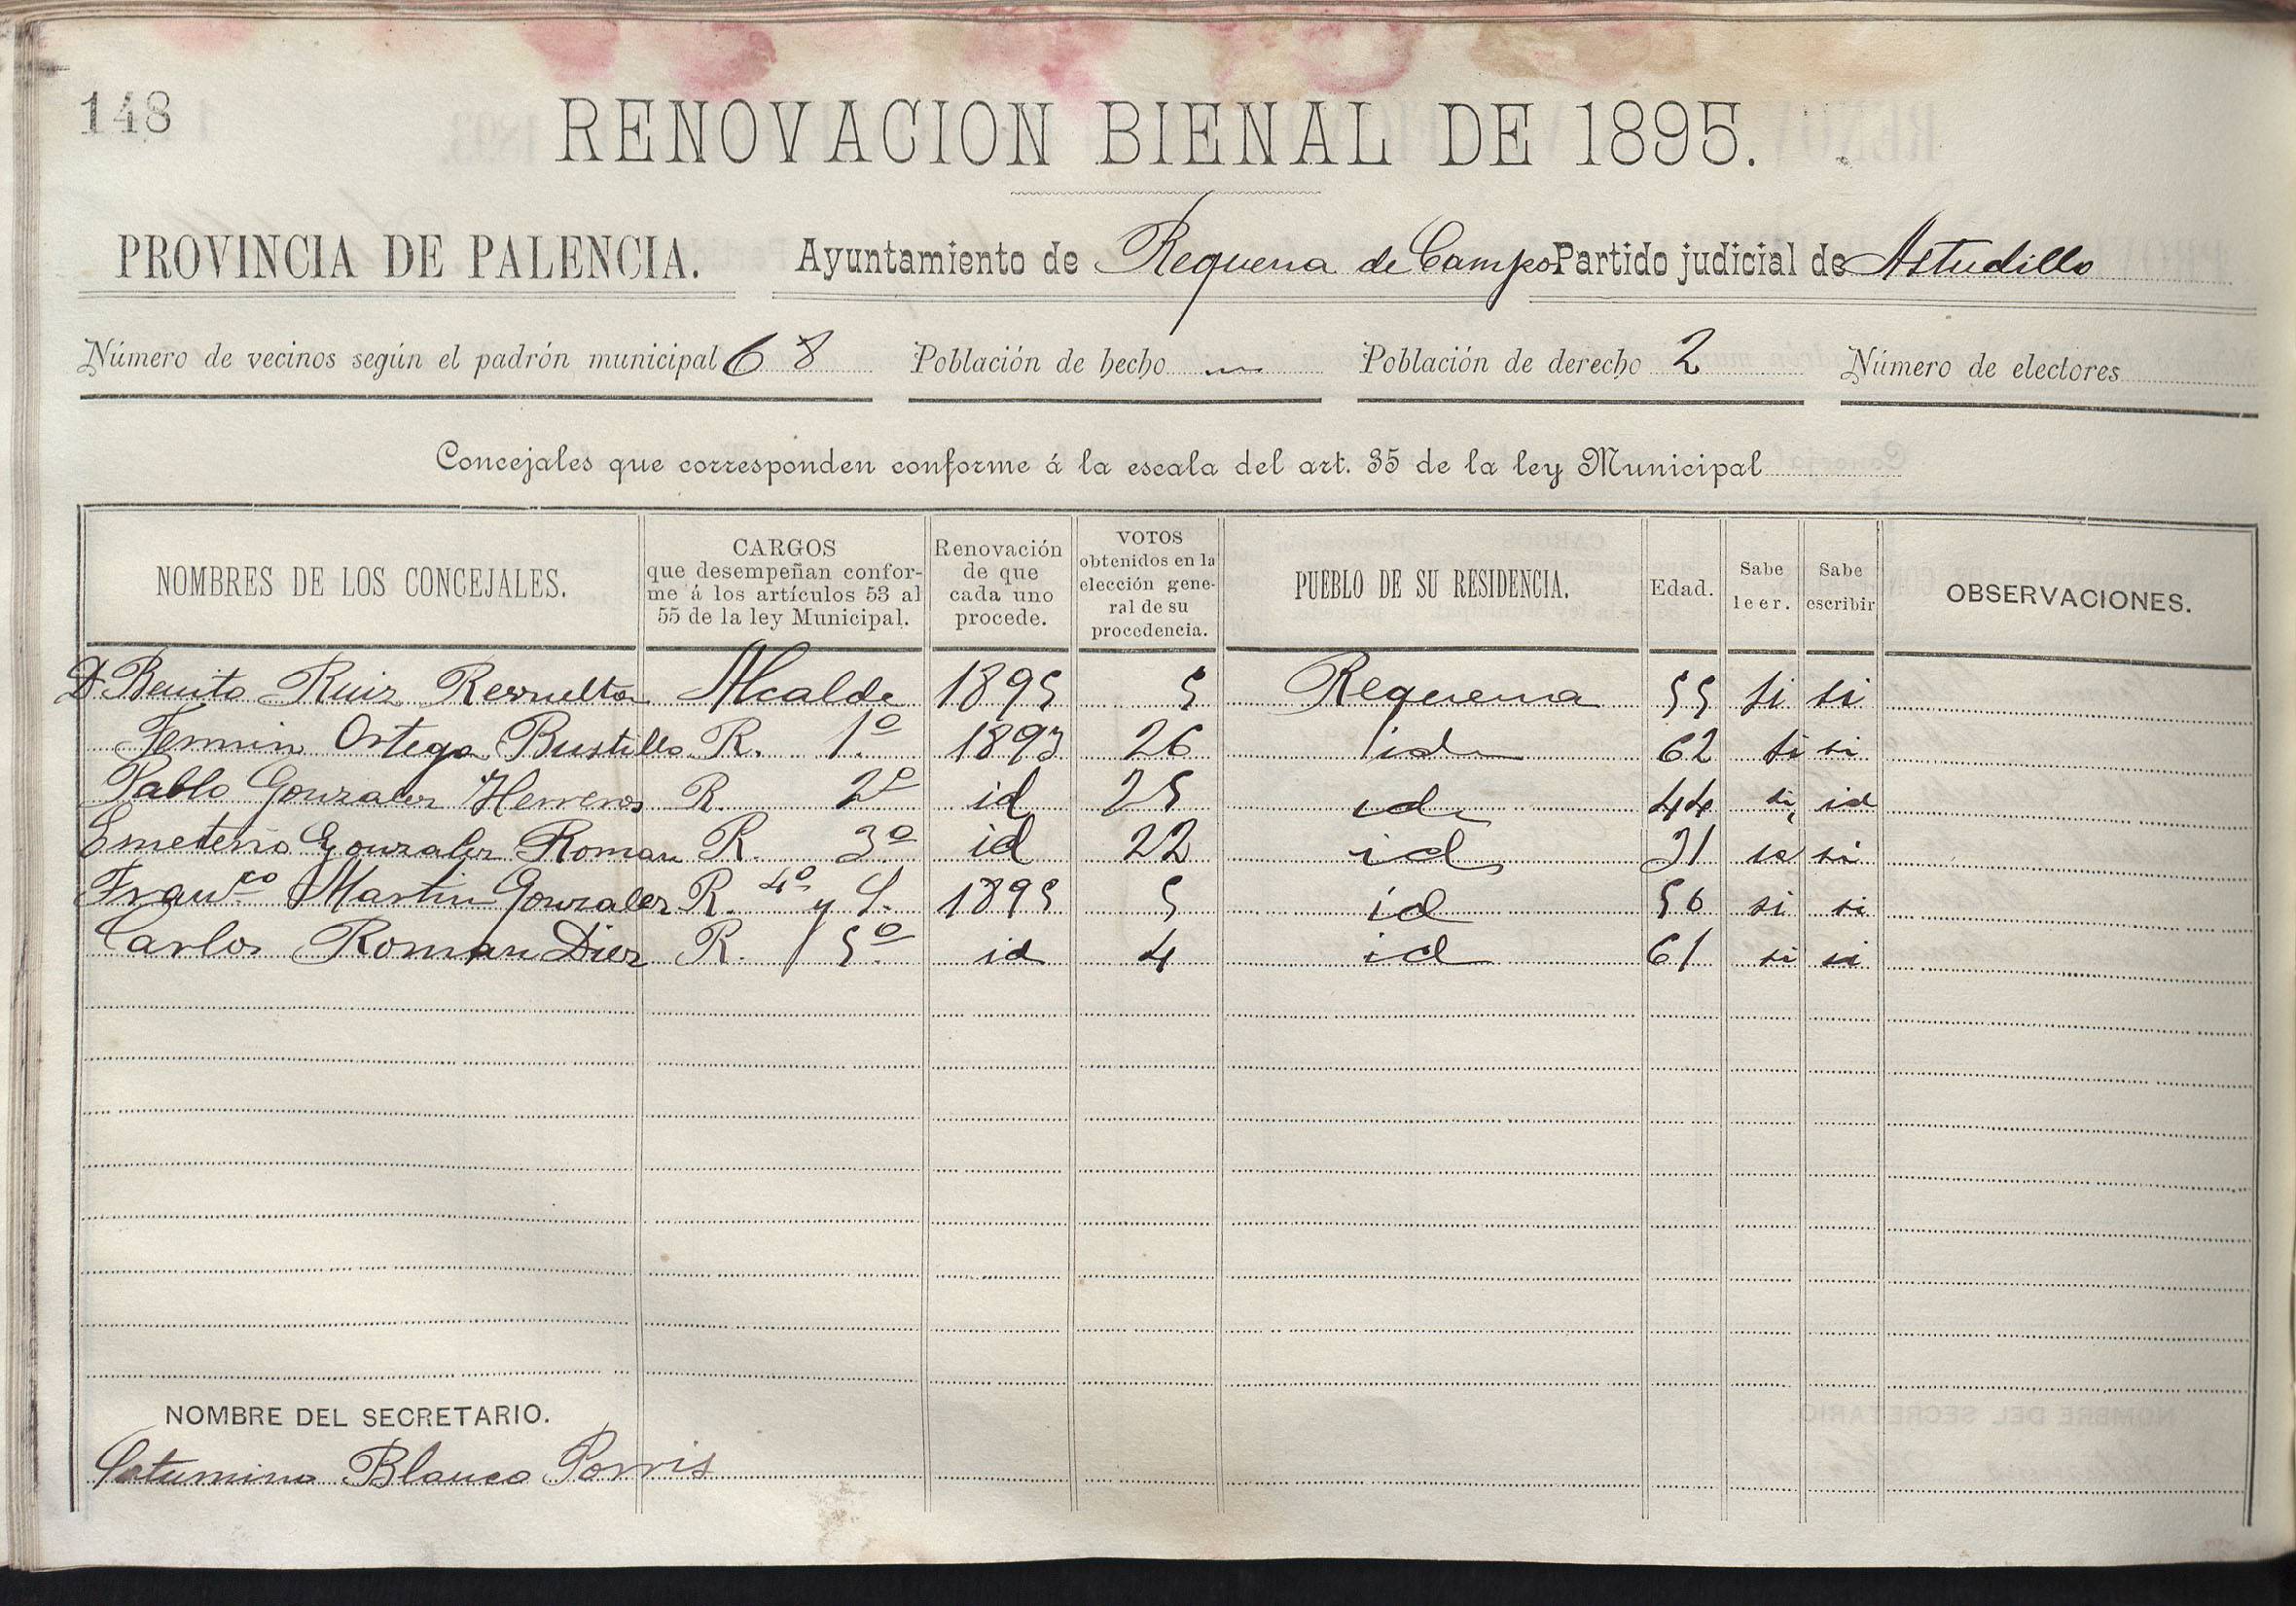 148
RENOVACION BIENAL DE 1895.
PROVINCIA DE PALENCIA. Ayuntamiento de Requena de Campos Partido judicial de Astudillo
Número de vecinos según el padrón municipal 68 Población de hecho Población de derecho 2 Número de electores
Concejales que corresponden conforme á la escala del art. 35 de la ley Municipal
NOMBRES DE LOS CONCEJALES.
CARGOS
que desempeñan confor-
me á los artículos 53 al
55 de la ley Municipal.
Renovación
de que
cada uno
procede.
VOTOS
obtenidos en la
elección gene-
ral de su
procedencia.
PUEBLO DE SU RESIDENCIA.
Edad.
Sabe
leer.
Sabe
escribir
OBSERVACIONES.
D. Benito Ruiz Alcalde 1895 5 Requena 55 si si
Fermin Ortega Bustillo R. 1º 1893 26 id 62 si si
Pablo Gonzalez Herreros R. 2º id 25 id 44 si id
Emeterio Gonzalez Roman R. 3º id 22 id 31 si si
Franco Martin Gonzalez R. 4º y S. 1895 5 id 56 si si
Carlos Roman Diez R. 5º id 4 id 61 si si
NOMBRE DEL SECRETARIO.
Saturnino Blanco Porris